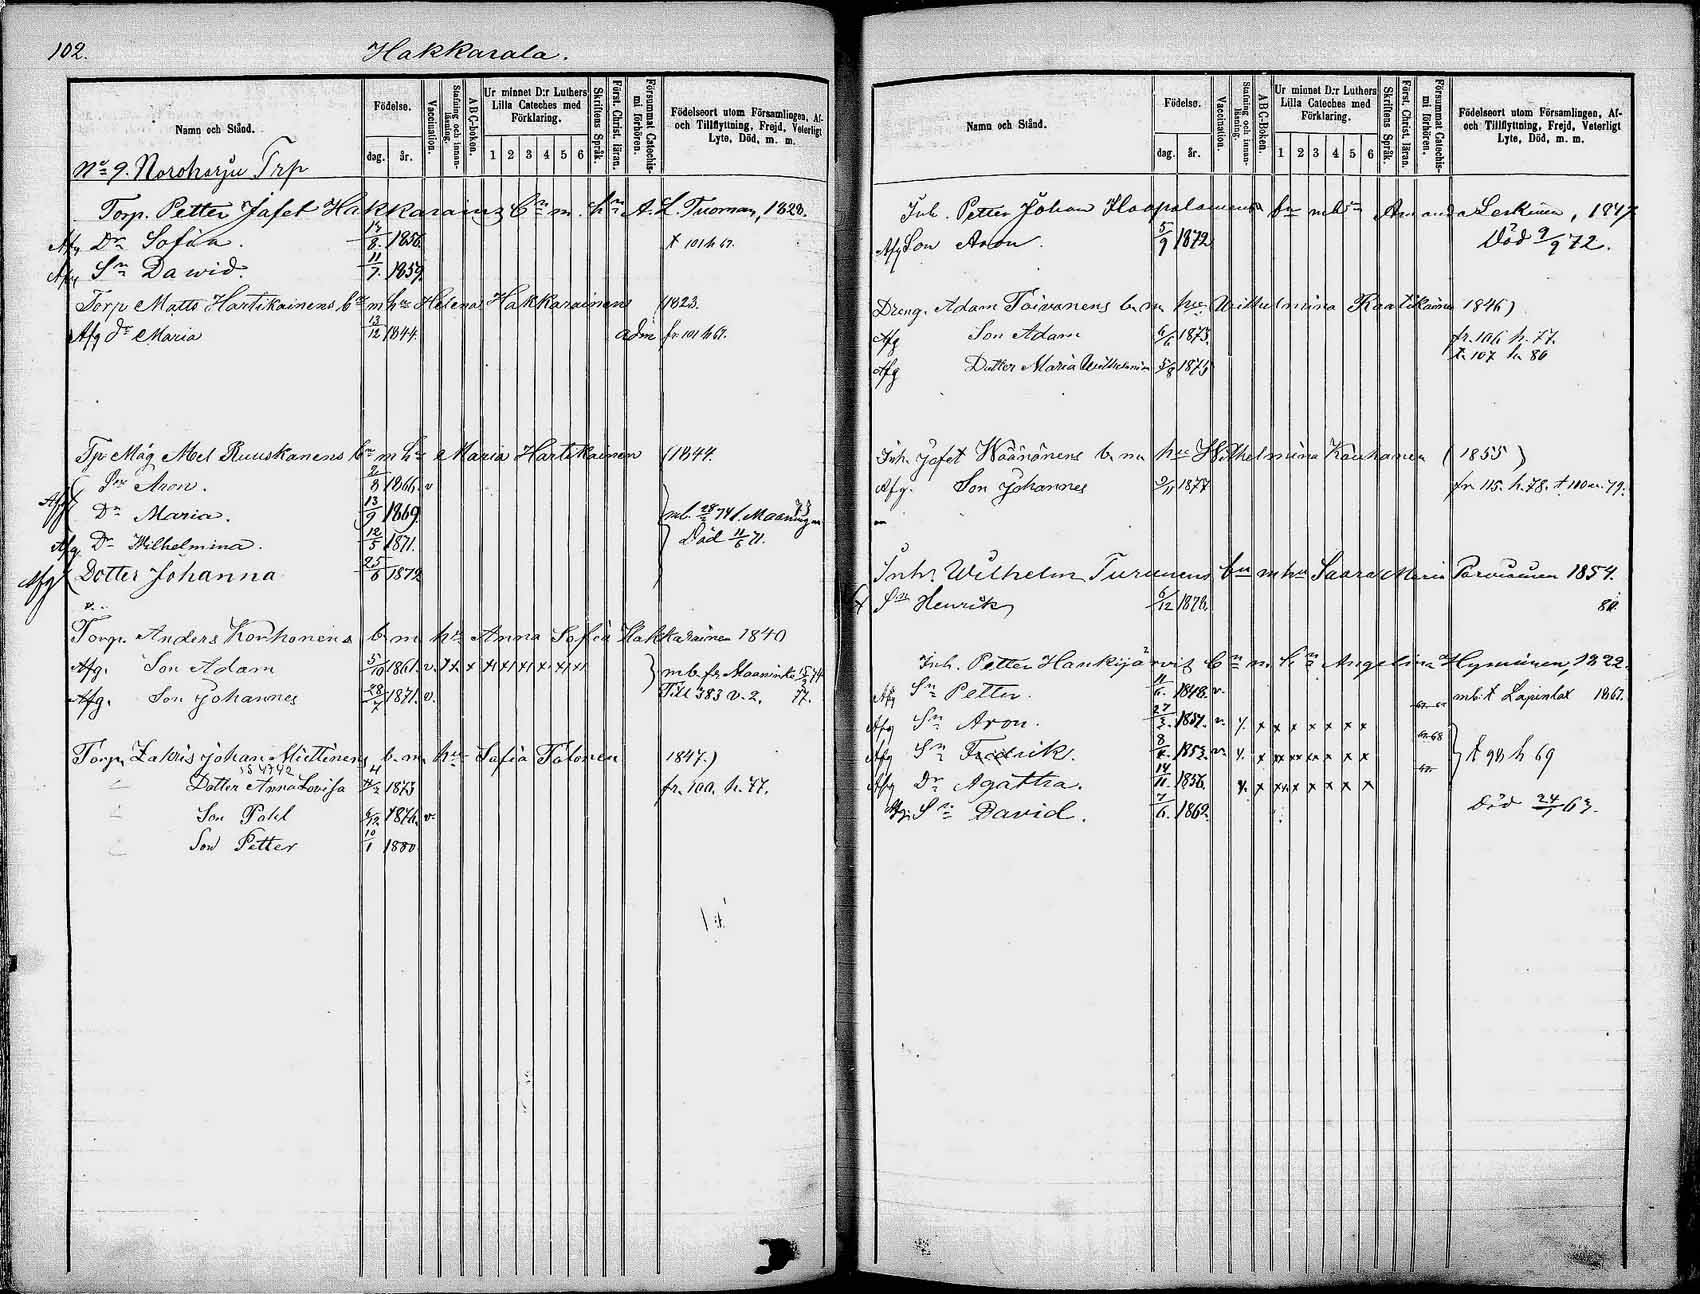 102. Hakkarala.
Namn och Stånd.
Födelse.
dag. år.
Vaccination.
Stafning och innanläsning.
A B C-boken.
Ur minnet D:r Luthers Lilla Cateches med Förklaring.
1 2 3 4 5 6
Skriftens Språk.
Först. Christ. läran.
Försummat Catechismi förhören.
Födelseort utom Församlingen, Af- och Tillflyttning, Frejd, Veterligt Lyte, Död, m. m.
No 9. Norohorju Trp
Torp. Petter Jafet Hakkarainz bn m. hn A. L. Tuoman, 1828.
Afg Dr Sofia. 14/8. 1856. t 101 h 67.
Afg Sn Dawid. 11/7. 1859.
Torp Matts Hartikainens bn m hu Helena Hakkarainens (1823.
Afg dr Maria 13/12 1844. adm fr. 101 h 67.
Tp Måg Abel Ruuskanens bn m hu Maria Hartikainen (1844.
Son Aron. 2/3 1866. v
Afg Dr Maria. 13/9 1869. mb. 28/2 74 f. Maaninga 73
Afg Dr Wilhelmina. 12/5 1871. Död 11/6 71.
Afg Dotter Johanna 25/6 1872
Torp. Anders Korhonens b. m. hu Anna Sofia Hakkarainen 1840
Afg. Son Adam 5/10 1861. v. x x x x x x x x mb. fr. Maaninka 15/3 74
Afg. Son Johannes 28/7 1871. v. Till 383 v. 2. 77.
Torp. Zakris Johan Miettinens b. m. hu Sofia Tolonen 1847.)
Dotter Anna Lovisa 4/2 1873 fr. 100. h. 77.
Son Pahl 6/12 1876. v.
Son Petter 10/1 1880
Namn och Stånd.
Födelse.
dag. år.
Vaccination.
Stafning och innanläsning.
A B C-boken.
Ur minnet D:r Luthers Lilla Cateches med Förklaring.
1 2 3 4 5 6
Skriftens Språk.
Först. Christ. läran.
Försummat Catechismi förhören.
Födelseort utom Församlingen, Af- och Tillflyttning, Frejd, Veterligt Lyte, Död, m. m.
Inh. Petter Johan Haapalainens bn m hn Amanda Leskinen, 1847.
Afg Son Aron. 5/9 1872 Död 9/9 72.
Dreng. Adam Toivanens b. m. hu Wilhelmina Raatikainen 1846)
Afg Son Adam 6/6 1873. fr. 106 h. 77.
t. 107 h. 80
Afg Dotter Maria Wilhelmina 5/8 1875
Inh. Jafet Wäänänens b. m. hu Wilhelmina Kauhanen (1855)
Afg. Son Johannes 9/11 1877 fr. 115. h. 78. t 110 u. 79.
Inh. Wilhelm Turunens bn m hu Saara Maria Parviainen 1854.
Sn Henrik 6/12 1878. 80.
Inh. Petter Hankijärvis bn m. hn Angelina Hyvärinen, 1822.
Afg Sn Petter. 11/6. 1848. v. mb. t Lapinlax 1867.
Afg Sn Aron. 27/3. 1851. v. x x x x x x x
Afg Sn Fredrik. 8/4. 1853. v. x x x x x x x t 98 h 69
Afg Dr Agatha. 14/11. 1856. x x x x x x x
Afg. Sn David. 7/6. 1862. Död 24/1 63.